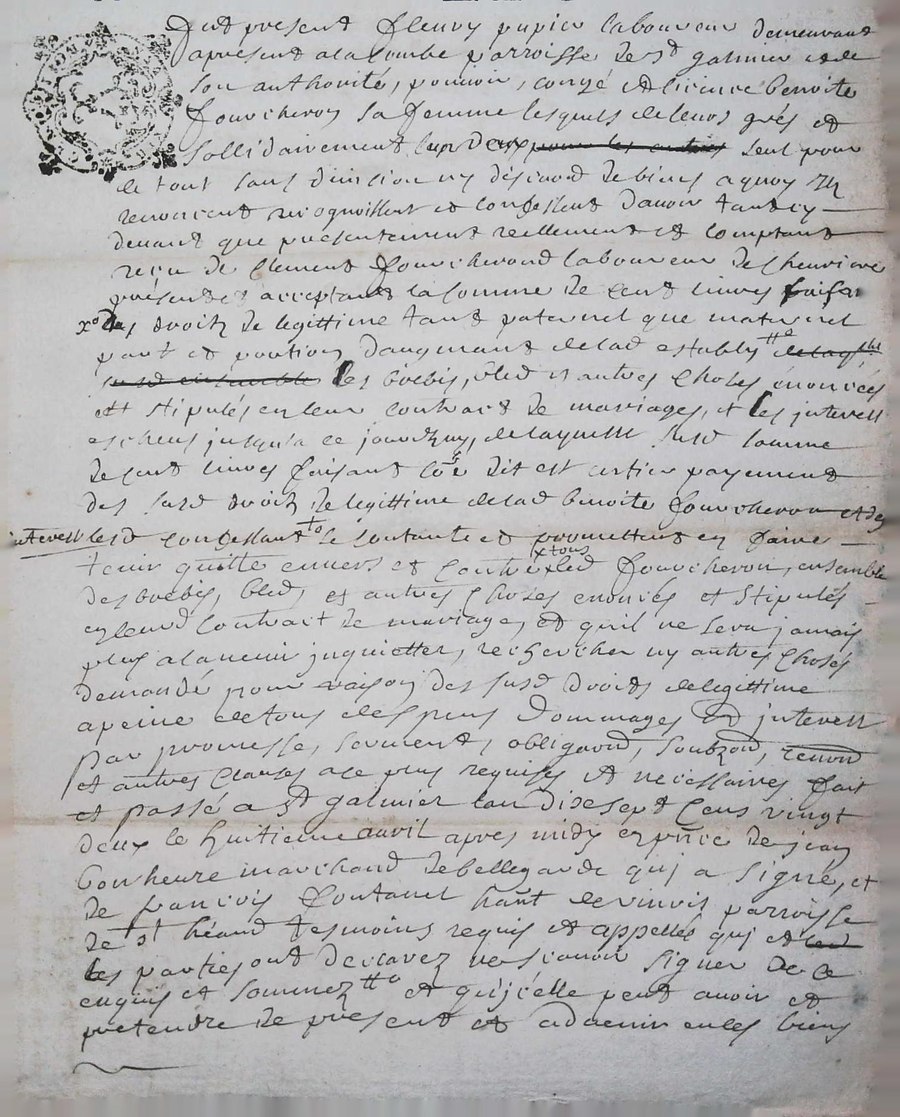 Fut present fleury pupier laboureur demeurant
apresent a la Combe parroisse de st galmier et de
son authorité, pouvoir, congé et licence benoite
fourcheron sa femme lesquels de leurs grés et
sollidairement lun deux pour les autres seul pour
le tout sans division ny discution de biens a quoy ils
renoncent recognoissent et confessent davoir tant cy
devant que presentement reellement et comptant
reçu de Clement fourcherond laboureur de
present et acceptant la somme de cent livres faisan
xo des droitz de legittime tant paternel que maternel
part et portion daugmant de lad establis
les brebis, bled et autres choses énoncées
et stipulés en leur contract de mariages, et les interest
escheus jusqua ce jourdhuy, de laquelle susd somme
de cent livres faisant coe dit est entier payement
des susd droitz de legittime de lad benoite fourcheron et des
interest lesd confessant se contante et promettent en faire
tenir quitte envers et contre tous led fourcheron, ensemble
des brebis, bled, et autres choses enoncés et stipulés
en leurd contract de mariage, et quil ne sera jamais
plus a lavenir inquietter, rechercher ny autres choses
demandé pour raison des susd droits de legittime
a peine de tous despens dommages et interest
par promesse, serment, obligaond, soubzond, renond
et autres clauses a ce plus requises et necessaires fait
et passé a st galmier lan dix sept cens vingt
deux le huitieme avril apres midy en pnce de jean
bonheure marchand de bellegarde qui a signé, et
de francois fontanel hant de vinois parroisse
de st héand tesmoins requis et appellés qui et
les parties ont declarez ne scavoir signer de ce
enquis et sommez tto et quicelle peut avoir et
pretendre de present et a lavenir en les biens